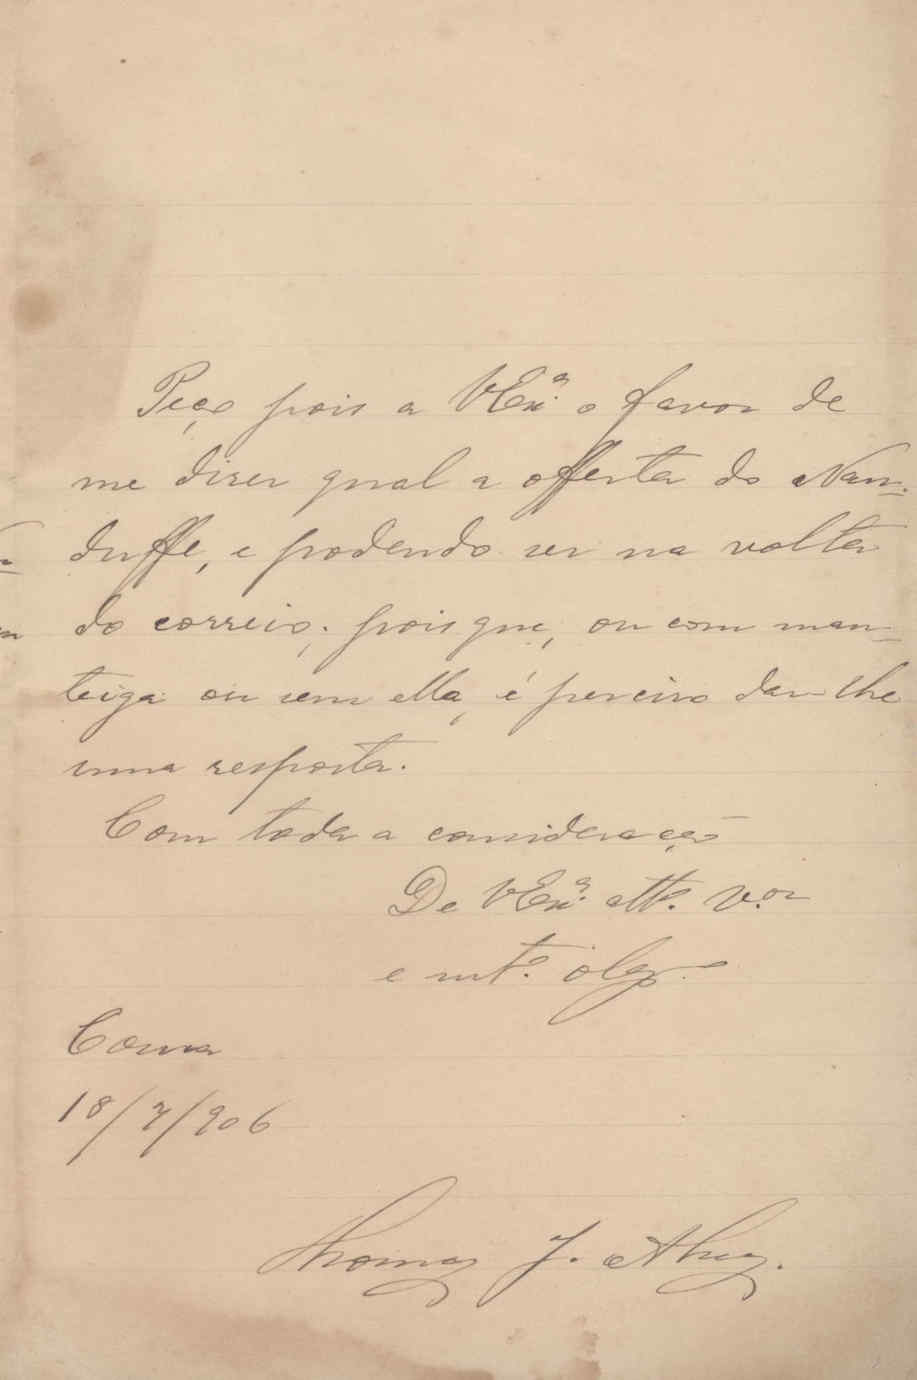 Peço pois a VExª o favor de
me diser qual a offerta do Nan-
duffe, e podendo ser na volta
do correio; pois que, ou com man-
teiga ou sem ella, é preciso dar-lhe
uma resposta.
Com toda a consideração
De VExª attº. V.or
e mtº. obgº
Couva
18/7/906
Thomaz J.